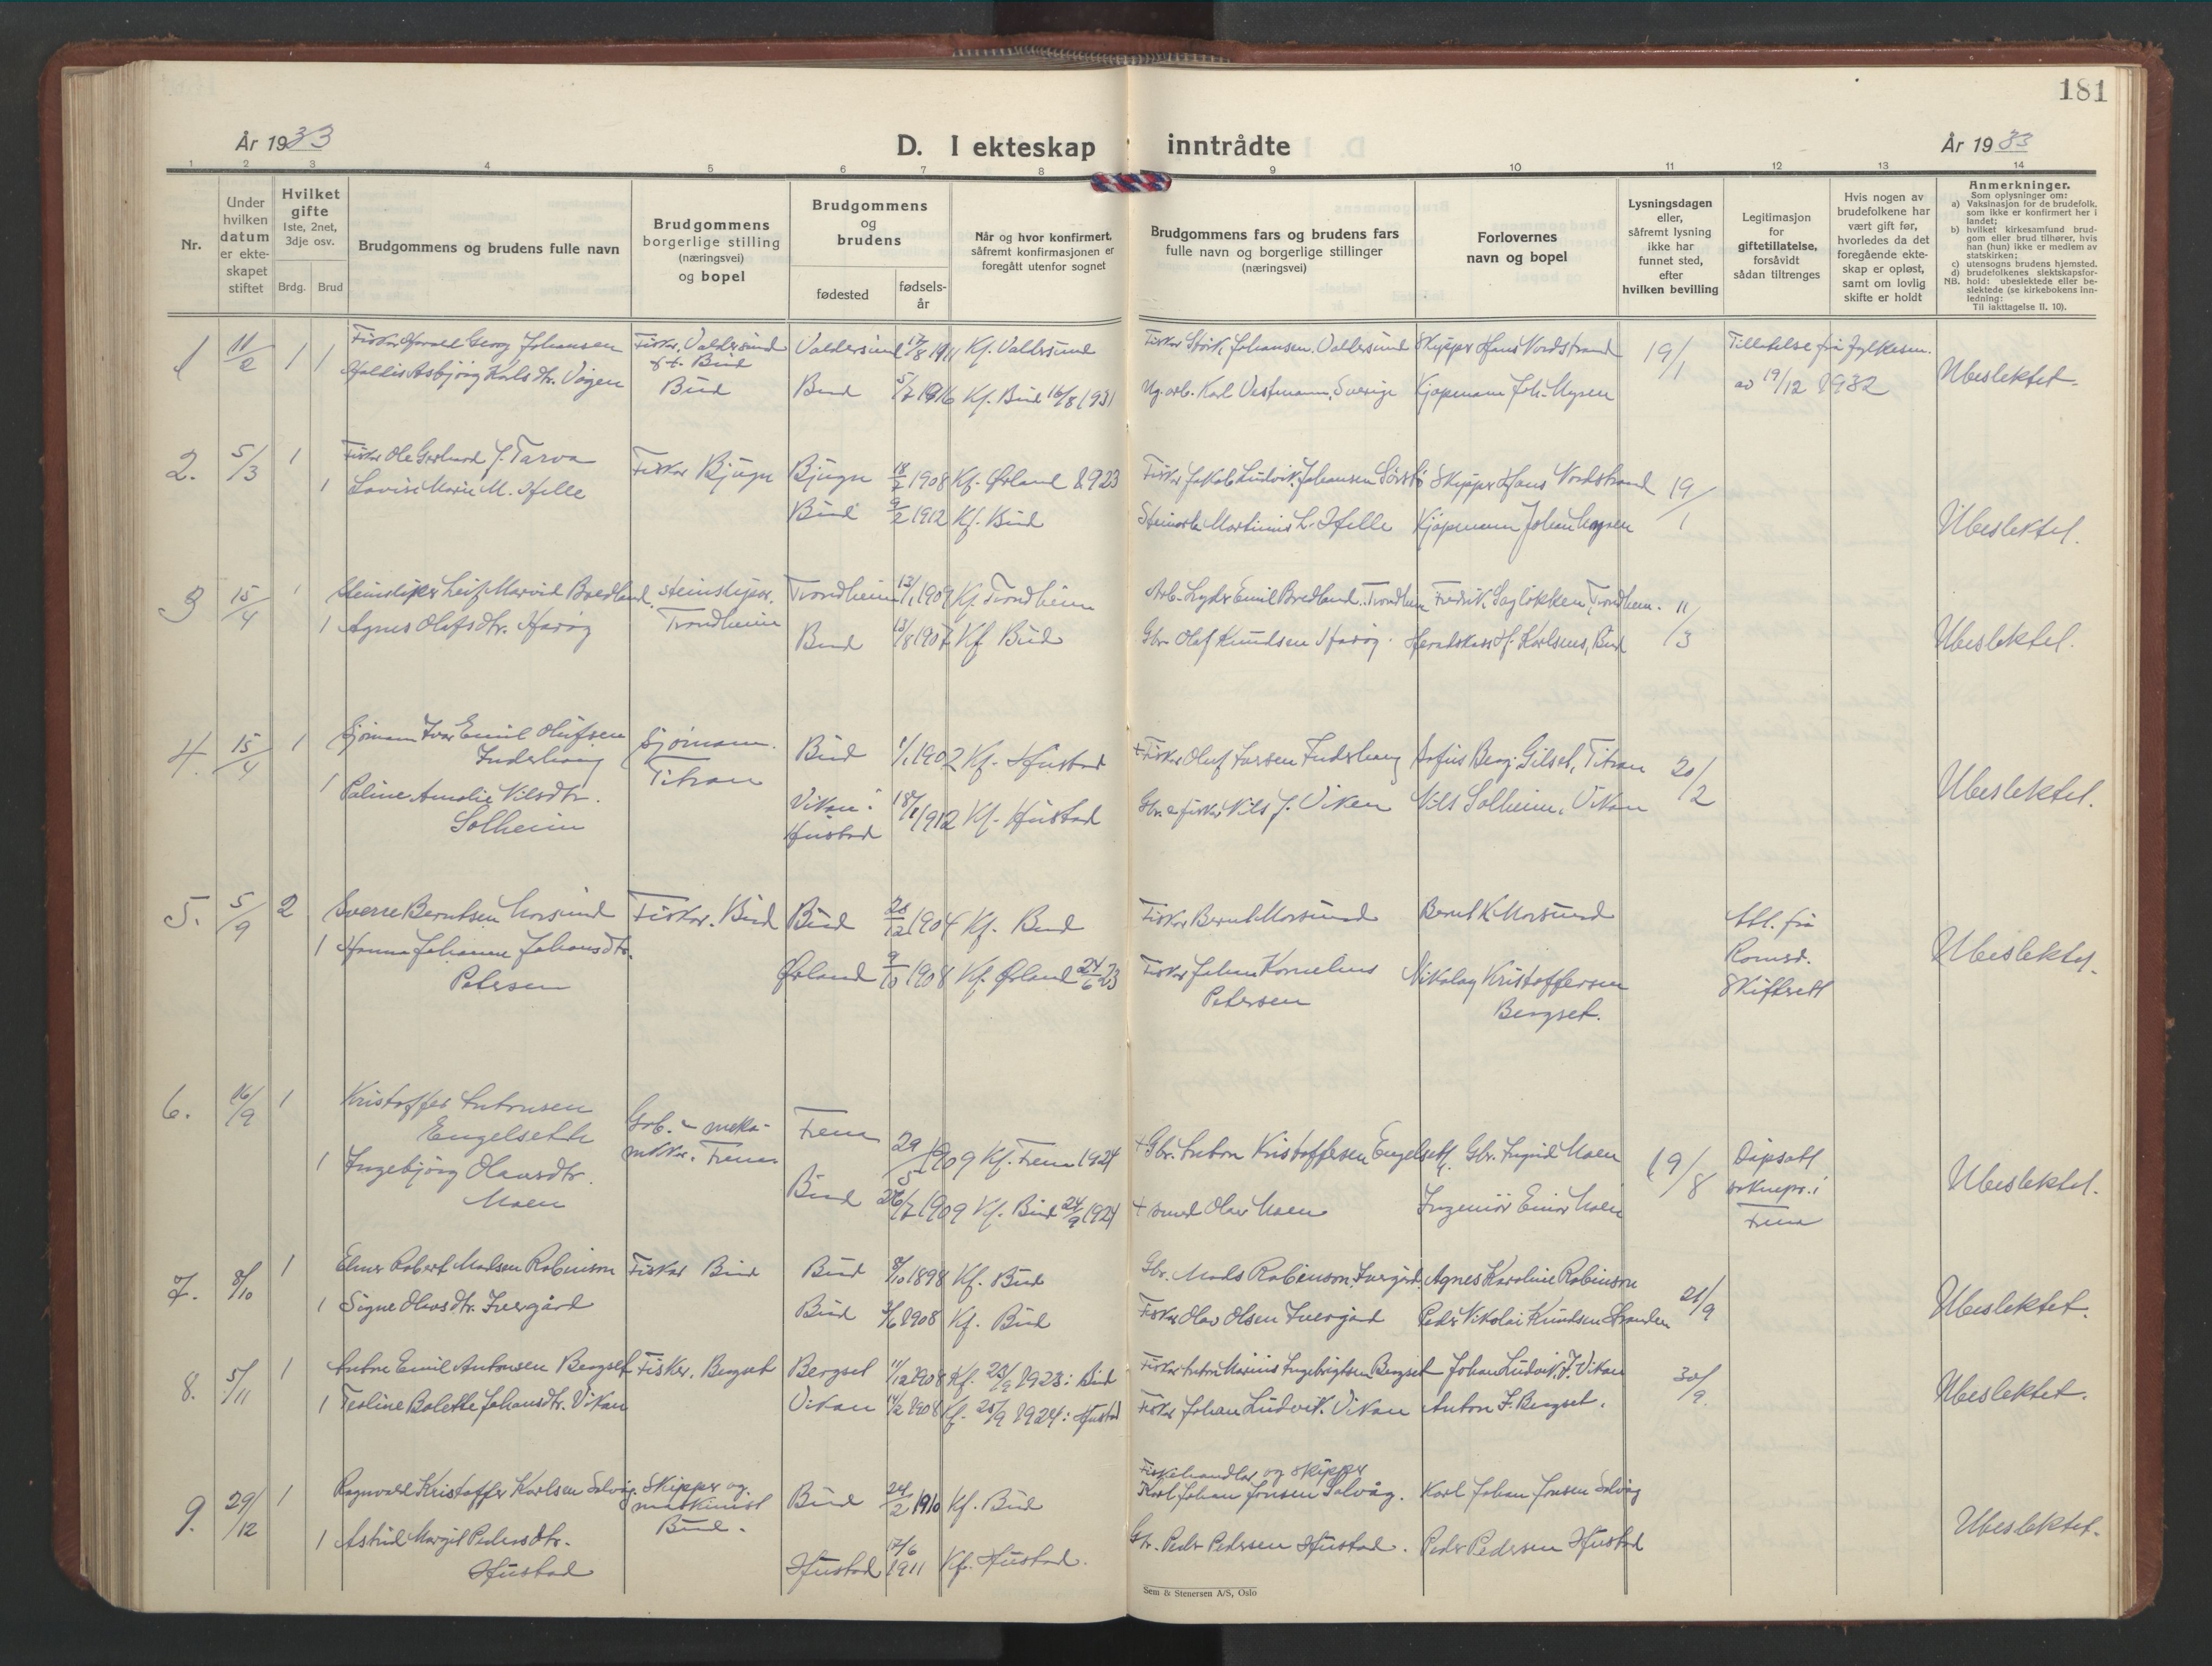 181
År 1933
D. I ekteskap inntrådte
År 1933
1 2 3 4 5 6 7 8 9 10 11 12 13 14
Nr.
Under hvilken datum er ekteskapet stiftet
Hvilket gifte 1ste, 2net, 3dje osv.
Brdg. Brud
Brudgommens og brudens fulle navn
Brudgommens borgerlige stilling (næringsvei) og bopel
Brudgommens og brudens
fødested
fødselsår
Når og hvor konfirmert, såfremt konfirmasjonen er foregått utenfor sognet
Brudgommens fars og brudens fars fulle navn og borgerlige stillinger (næringsvei)
Forlovernes navn og bopel
Lysningsdagen eller, såfremt lysning ikke har funnet sted, efter hvilken bevilling
Legitimasjon for giftetillatelse, forsåvidt sådan tiltrenges
Hvis nogen av brudefolkene har vært gift før, hvorledes da det foregående ekteskap er opløst, samt om lovlig skifte er holdt
Anmerkninger.
Som oplysninger om:
a) Vaksinasjon for de brudefolk, som ikke er konfirmert her i landet;
b) hvilket kirkesamfund brudgom eller brud tilhører, hvis han (hun) ikke er medlem av statskirken;
c) utensogns brudens hjemsted.
d) brudefolkenes slektskapsforhold: ubeslektede eller beslektede (se kirkebokens innledning:
NB.
Til iakttagelse II. 10).
1 11/2 1 1 Fisker Harald Georg Johansen Fisker, Valdersund Valdersund 17/8 1911 Kf. Valdersund Fisker Johansen, Valdersund Skipper Hans Nordstrand 19/1 Tillatelse fra fylkesm.
f.t. Bud
Haldis Asbjørg Karlsdtr. Vågen Bud Bud 5/7 1916 Kf. Bud 16/8 1931 Karl Vestmann, Sverige Kjøpmann Joh. Mysen av 19/12 1932 Ubeslektet.
2. 5/3 1 Fisker Ole Gerhard J. Tarva Fisker Bjugn Bjugn 18/2 1908 Kf. Ørland 1923 Fisker Jakob Ludvik Johansen Skipper Hans Nordstrand 19/1
1 Lovise Marie M. Helle Bud 9/2 1912 Kf. Bud Martinus L. Helle Kjøpmann Johan Mysen Ubeslektet.
3 15/4 1 Steinsliper Leif Marvid Bredland. steinsliper. Trondheim 13/1 1909 Kf. Trondheim Arb. Emil Bredland. Trondheim Fredrik Sagløkken, Trondheim. 11/3
1 Agnes Olufsdtr. Harøy Trondheim Bud 13/8 1907 Kf. Bud Gbr. Olaf Knudsen Harøy. Karlsens, Bud Ubeslektet.
4. 15/4 1 Sjømann Ivar Emil Olufsen Sjømann. Bud 1/1 1902 Kf. Hustad + Fisker Oluf Larsen Inderhaug Sofus Berg. Gilset, Titran 20/2
Inderhaug Titran
1 Paline Amalie Nilsdtr. Vikan: 18/1 1912 Kf. Hustad Gbr. & fisker Nils J. Viken Nils Solheim, Vikan Ubeslektet.
Solheim Hustad
5. 5/9 2 Sverre Berntsen Morsund Fisker. Bud Bud 28/12 1904 Kf. Bud Fisker Bernt Morsund Bernt K Morsund Att. fra
1 Hanna Johanne Johansdtr. Ørland 9/10 1908 Kf. Ørland 24/6 23 Fisker Johan Kornelius Nikolay Kristoffersen Romsd. Ubeslektet.
Petersen Petersen Bergset. Skifterett
6. 16/9 1 Kristoffer Antonsen
Engelseth Gbr. - meka- Fræna 29/5 1909 Kf. Fræna 1924 + Gbr. Anton Kristoffersen Engelseth. Gbr. Moen 19/8 Dåpsatt
1 Ingebjørg Olausdtr. niker. Fræna
Moen Bud 26/7 1909 Kf. Bud 24/9 1924 + smed Olav Moen Ingeniør Einar Moen soknepr. i Fræna Ubeslektet.
7. 8/10 1 Elmer Robert Madsen Robinson Fisker Bud Bud 8/10 1898 Kf. Bud Gbr. Mads Robinson, Ivergård, Agnes Karoline Robinson 21/9
1 Signe Olavsdtr. Ivergård Bud 3/6 1908 Kf. Bud Fisker Olav Olsen Ivergård Peder Nikolai Knudsen Stranden Ubeslektet.
8. 5/11 1 Anton Emil Antonsen Bergset Fisker. Bergset Bergset 11/12 1908 Kf. 23/9 1923: Bud Fisker Anton Marius Ingebrigtsen Bergset Johan Ludvik J. Vikan 30/9
1 Teoline Bolette Johansdtr. Vikan Vikan 14/2 1908 Kf. 25/9 1924: Hustad Fisker Johan Ludvik Vikan Anton I. Bergset. Ubeslektet.
9. 29/12 1 Ragnvald Kristoffer Karlsen Solvåg. Skipper og maskinist Bud. Bud 24/2 1910 Kf. Bud Fiskehandler og skipper Karl Johan Jonsen Solvåg. Karl Johan Jonsen Solvåg
1 Astrid Margit Pedersdtr. Hustad Hustad 17/6 1911 Kf. Hustad. Gbr. Peder Pedersen Hustad. Peder Pedersen Hustad Ubeslektet.
Sem & Stenersen A/S, Oslo